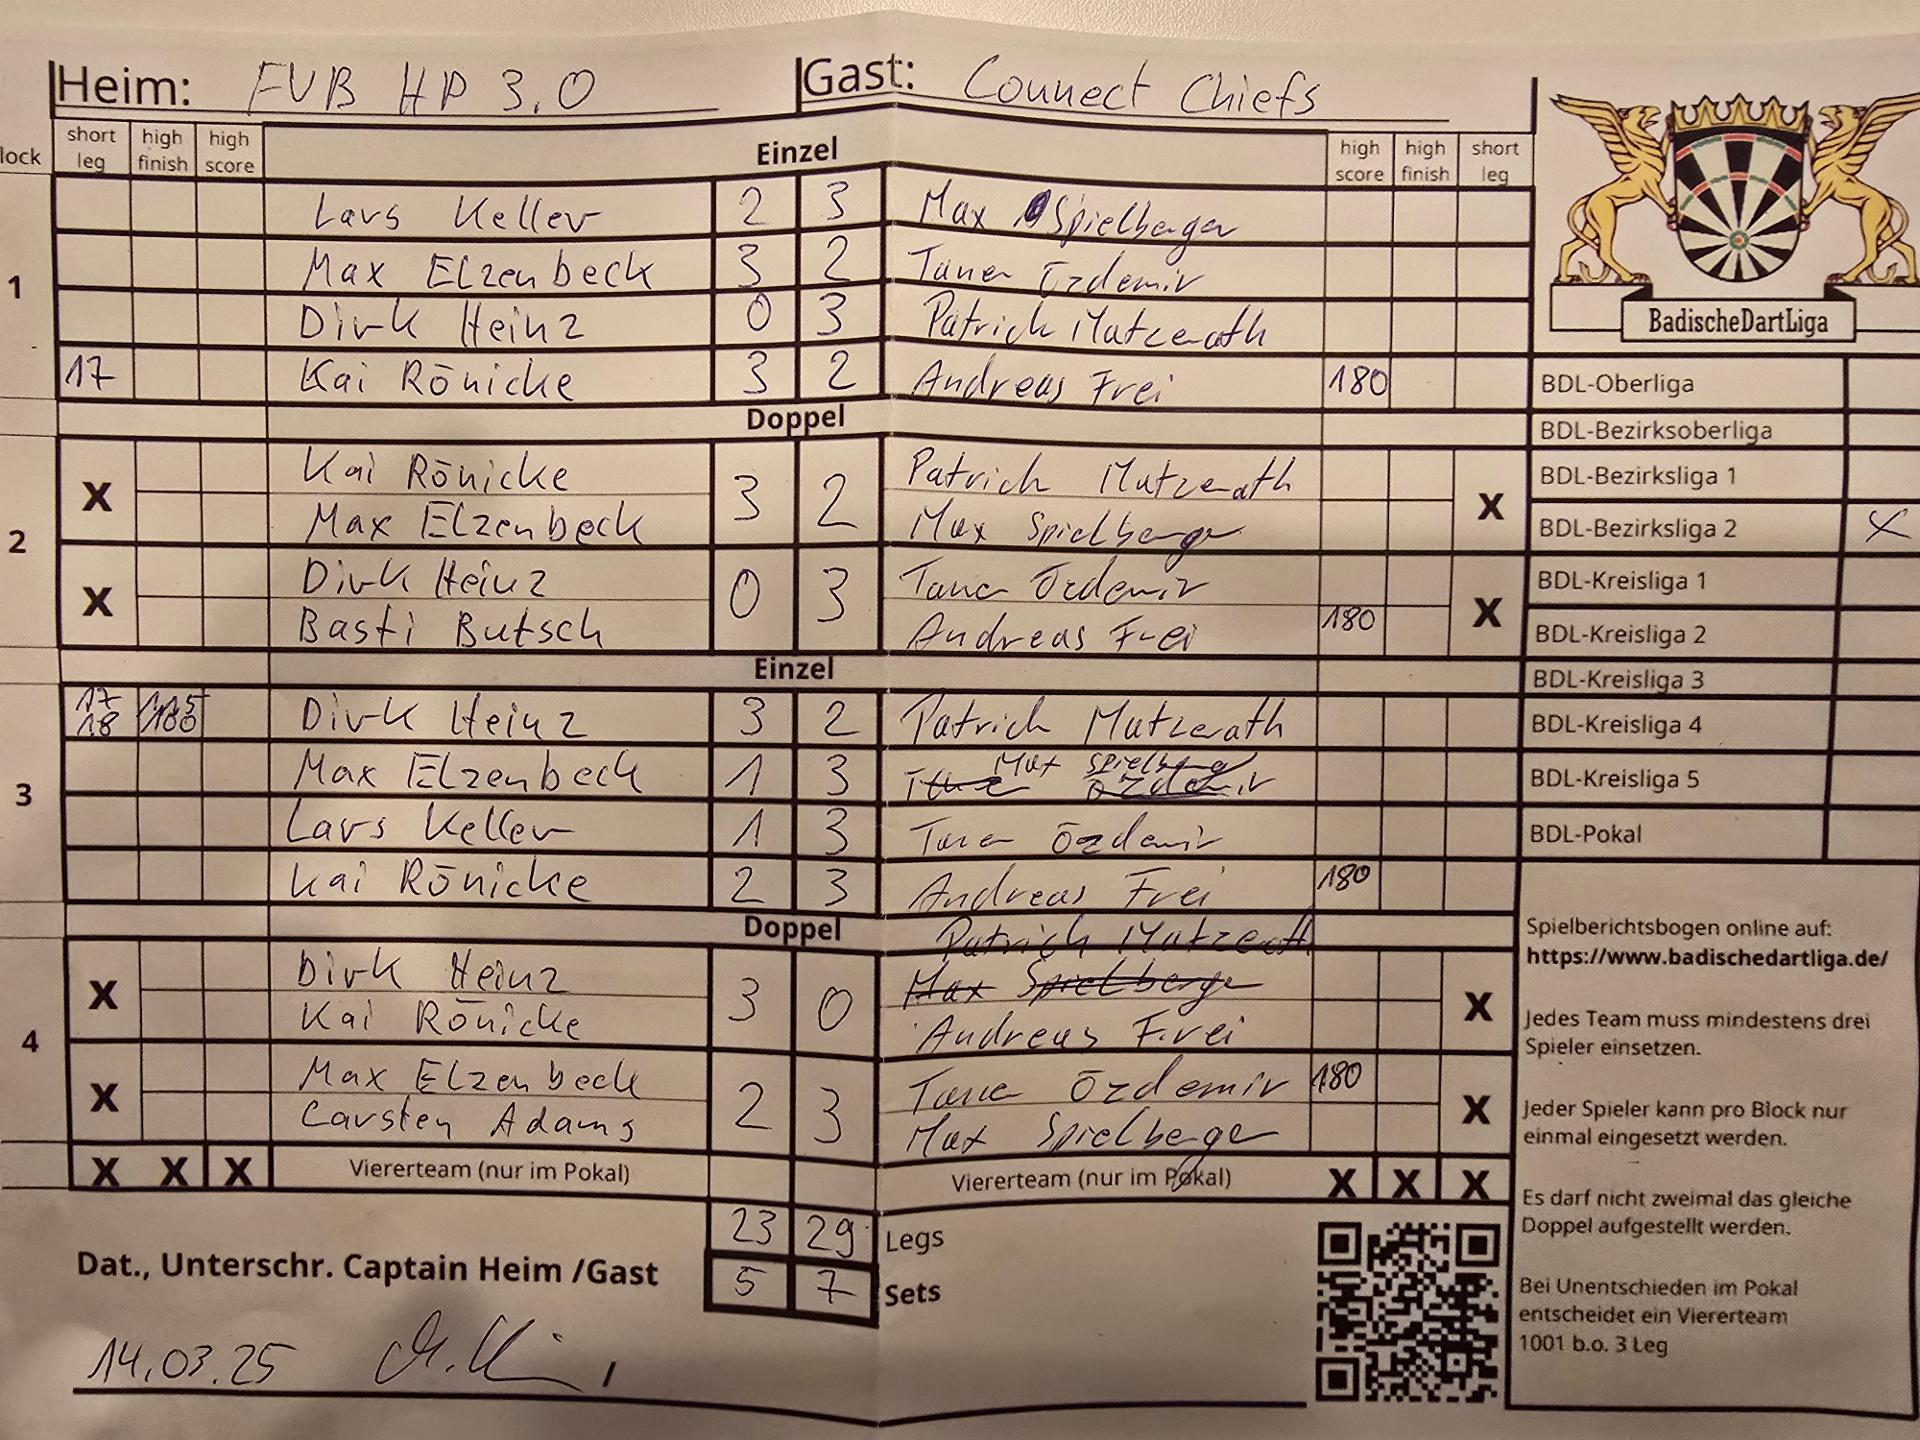 Heim: FVB HP 3.0 Gast: Connect Chiefs
lock short leg high finish high score Einzel high score high finish short leg
1
Lars Keller 2 3 Max Spielberger
Max Elzenbeck 3 2 Taner Özdemir
Dirk Heinz 0 3 Patrick Matzerath
17 Kai Rönicke 3 2 Andreas Frei 180
Doppel
2
X Kai Rönicke 3 2 Patrick Matzerath X
Max Elzenbeck Max Spielberger
X Dirk Heinz 0 3 Taner Özdemir X
Basti Butsch Andreas Frei 180
Einzel
3
17 18 115 100 Dirk Heinz 3 2 Patrick Matzerath
Max Elzenbeck 1 3 Max Spielberger
Taner Özdemir
Lars Keller 1 3 Taner Özdemir
Kai Rönicke 2 3 Andreas Frei 180
Doppel
4
Patrick Matzerath
X Dirk Heinz 3 0 Max Spielberger X
Kai Rönicke Andreas Frei
X Max Elzenbeck 2 3 Taner Özdemir 180 X
Carsten Adams Max Spielberger
X X X Viererteam (nur im Pokal) Viererteam (nur im Pokal) X X X
23 29 Legs
5 7 Sets
Dat., Unterschr. Captain Heim /Gast
14.03.25 /
BadischeDartLiga
BDL-Oberliga
BDL-Bezirksoberliga
BDL-Bezirksliga 1
BDL-Bezirksliga 2 X
BDL-Kreisliga 1
BDL-Kreisliga 2
BDL-Kreisliga 3
BDL-Kreisliga 4
BDL-Kreisliga 5
BDL-Pokal
Spielberichtsbogen online auf:
https://www.badischedartliga.de/
Jedes Team muss mindestens drei
Spieler einsetzen.
Jeder Spieler kann pro Block nur
einmal eingesetzt werden.
Es darf nicht zweimal das gleiche
Doppel aufgestellt werden.
Bei Unentschieden im Pokal
entscheidet ein Viererteam
1001 b.o. 3 Leg